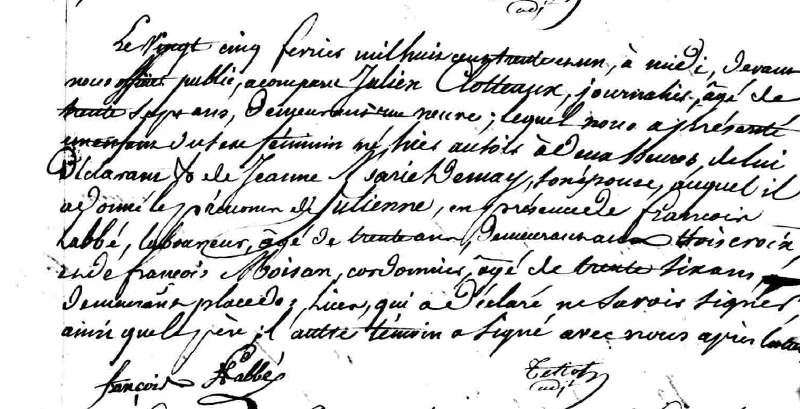 adjt
Le Vingt cinq fevrier mil huit cent trente et un, à midi, devant
nous officier public, a comparu Julien Clotteaux, journalier, âgé de
trente sept ans, demeurant rue neuve; lequel nous a présenté
un enfant du sexe féminin né hier au soir à deux heures, de lui
Déclarant & de Jeanne Marie Demay, son épouse, auquel il
a donné le prénom de Julienne, en présence de françois
Labbé, laboureur, âgé de trente ans, demeurant aux trois croix,
et de françois Moisan, cordonnier, âgé de trente six ans,
demeurant place des lices, qui a déclaré ne savoir signer,
ainsi que le père; l'autre témoin a signé avec nous après lecture
françois Labbé
adjt